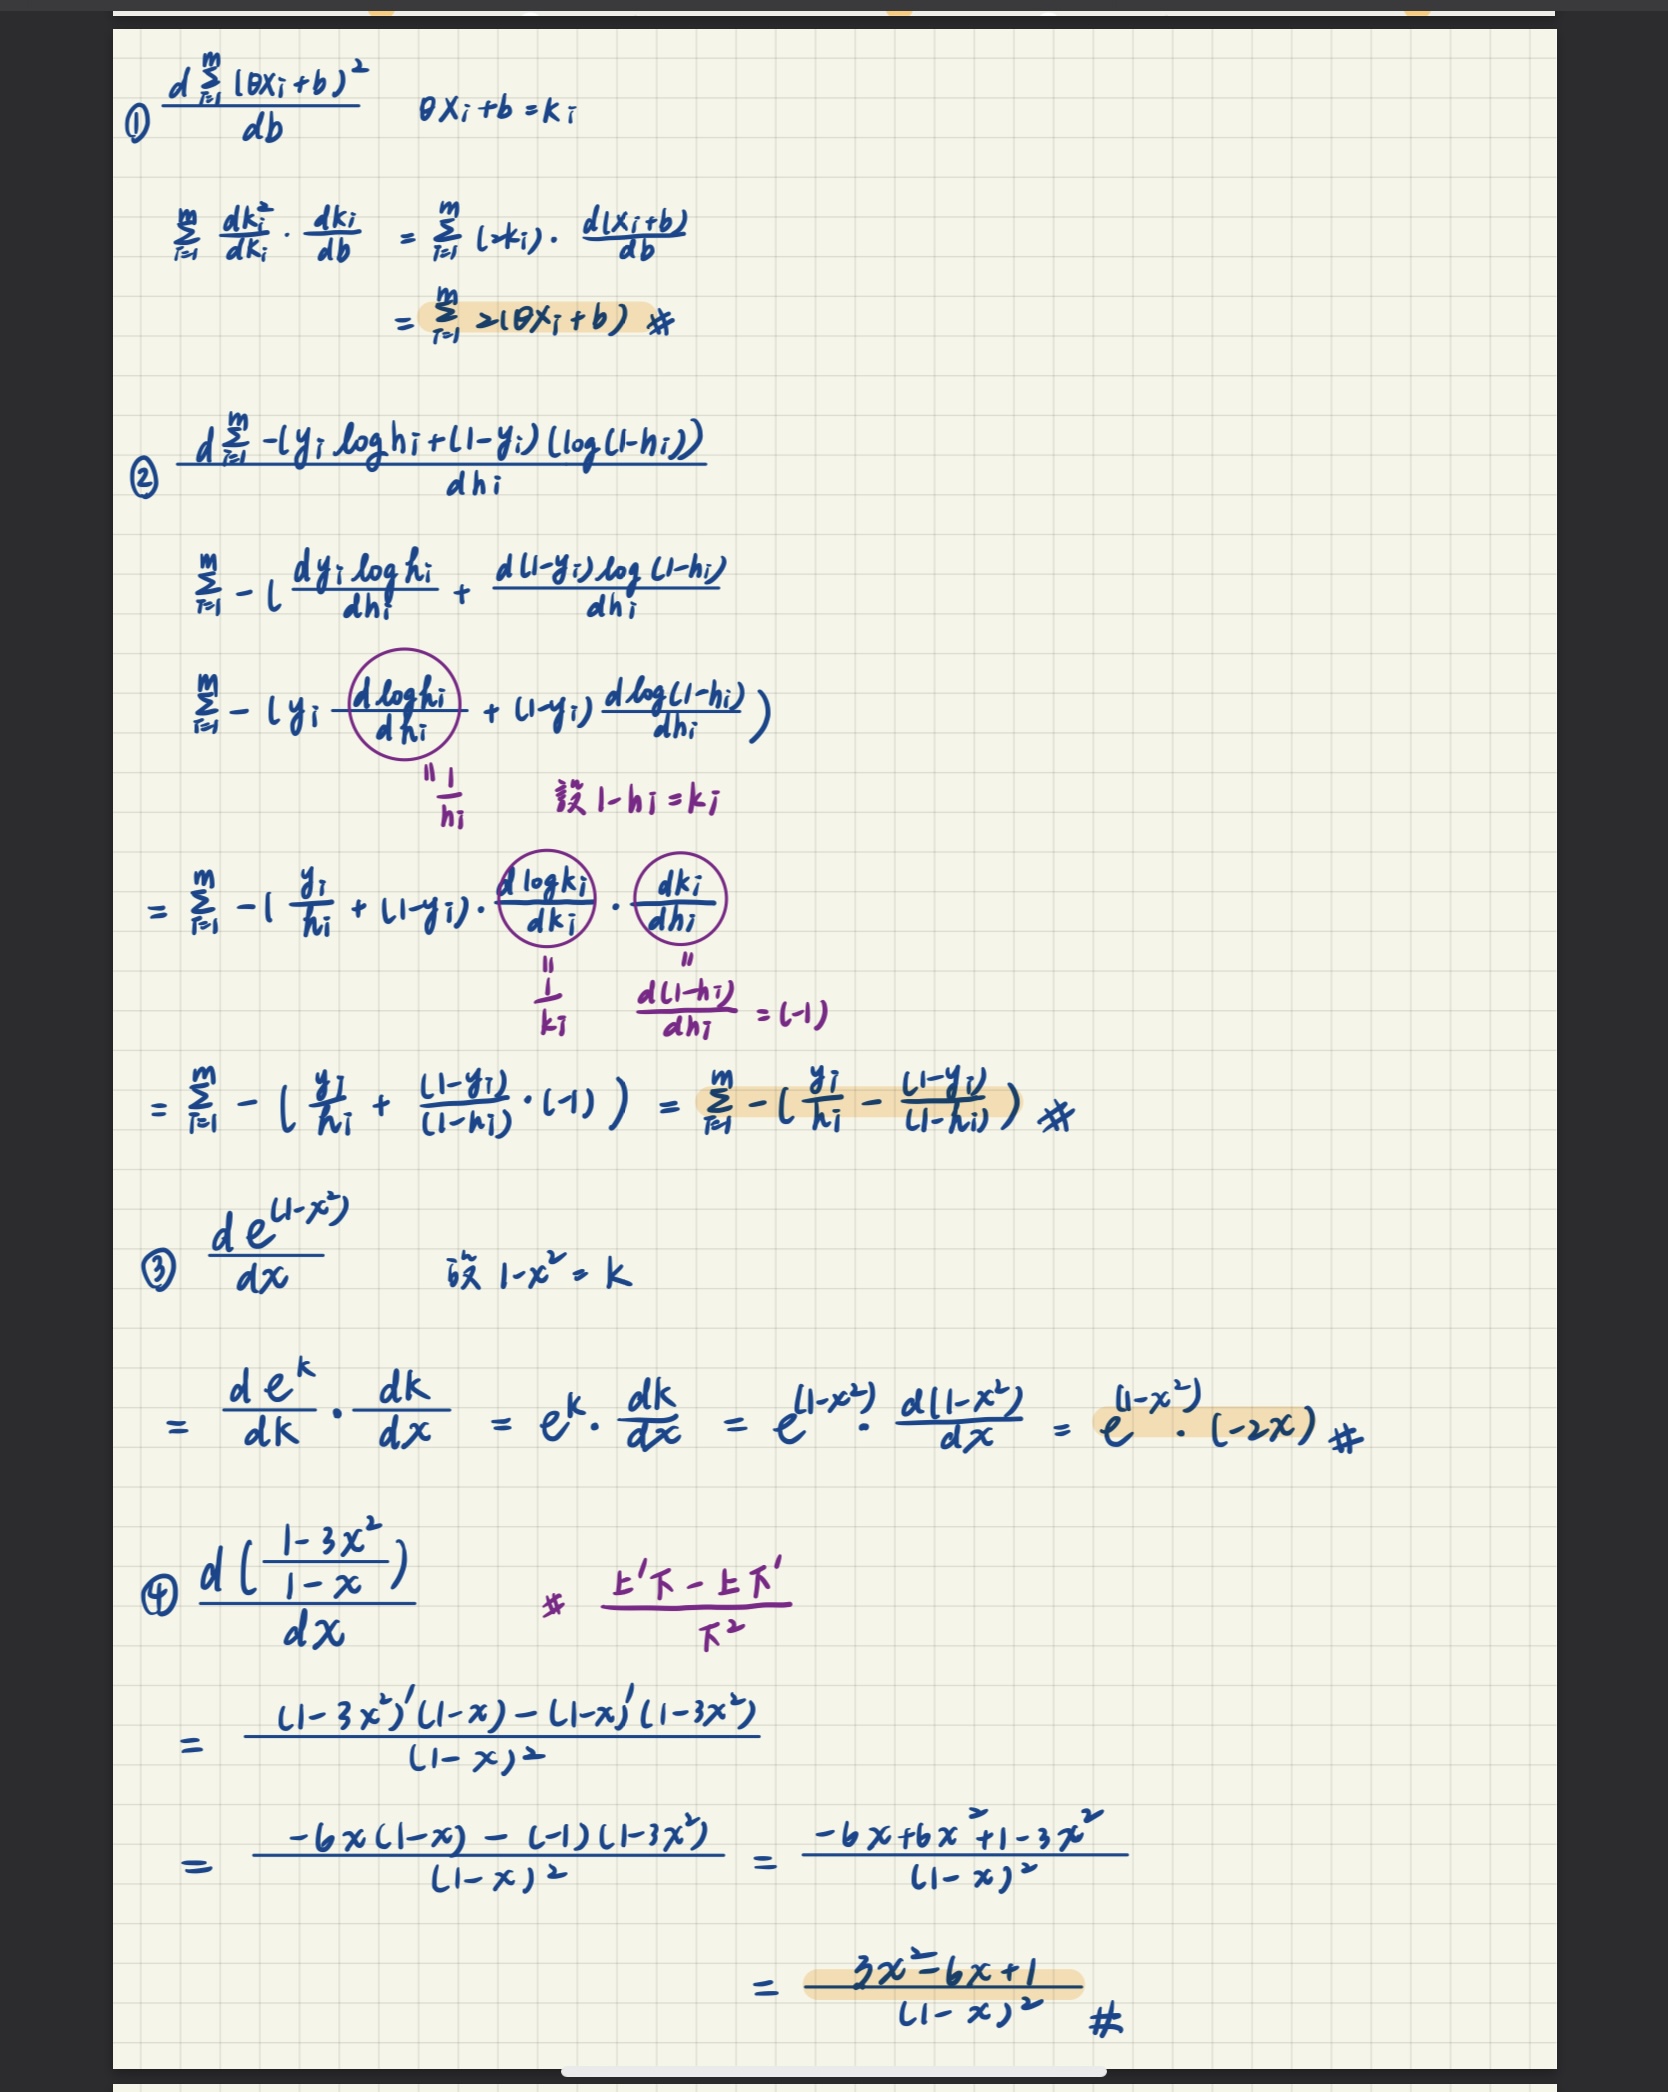 ① d Σ_{i=1}^{m} (θx_i+b)² / db  θx_i+b = k_i
Σ_{i=1}^{m} dk_i²/dk_i · dk_i/db = Σ_{i=1}^{m} (2k_i) · d(x_i+b)/db
= Σ_{i=1}^{m} 2(θx_i+b) #
② d Σ_{i=1}^{m} -(y_i log h_i+(1-y_i)(log(1-h_i)) / dh_i
Σ_{i=1}^{m} -( dy_i log h_i / dh_i + d(1-y_i)log(1-h_i) / dh_i
Σ_{i=1}^{m} -(y_i d log h_i / dh_i + (1-y_i) d log(1-h_i) / dh_i )
= 1/h_i  設 1-h_i = k_i
= Σ_{i=1}^{m} -( y_i/h_i + (1-y_i) · d log k_i / dk_i · dk_i/dh_i
= 1/k_i  = d(1-h_i)/dh_i = (-1)
= Σ_{i=1}^{m} -( y_i/h_i + (1-y_i)/(1-h_i) · (-1) ) = Σ_{i=1}^{m} -( y_i/h_i - (1-y_i)/(1-h_i) ) #
③ d e^(1-x²) / dx  設 1-x² = k
= d e^k / dk · dk/dx = e^k · dk/dx = e^(1-x²) · d(1-x²)/dx = e^(1-x²) · (-2x) #
④ d( (1-3x²) / (1-x) ) / dx  # (上'下 - 上下') / 下²
= ( (1-3x²)'(1-x) - (1-x)'(1-3x²) ) / (1-x)²
= ( -6x(1-x) - (-1)(1-3x²) ) / (1-x)² = ( -6x+6x²+1-3x² ) / (1-x)²
= ( 3x²-6x+1 ) / (1-x)² #